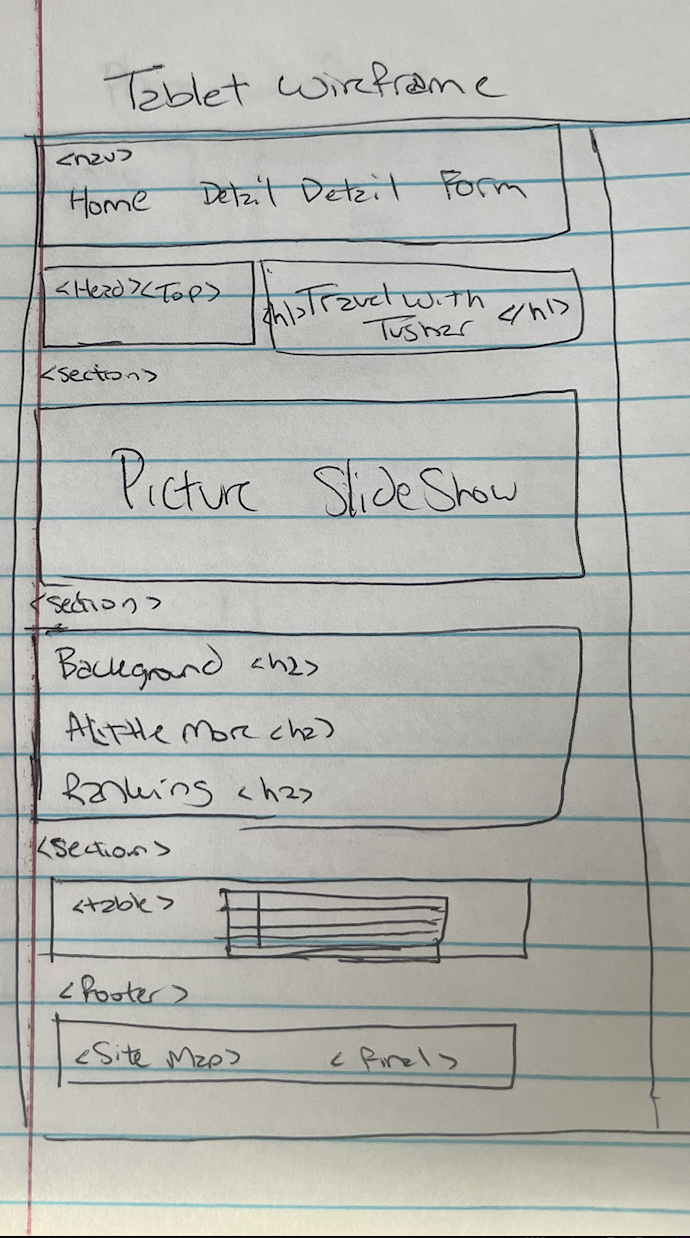 Tablet Wireframe
<nav>
Home Detail Detail Form
<Head><Top>
<h1>Travel with
Tushar </h1>
<section>
Picture SlideShow
<section>
Background <h2>
A little more <h2>
Ranking <h2>
<section>
<table>
<footer>
<Site Map> <final>